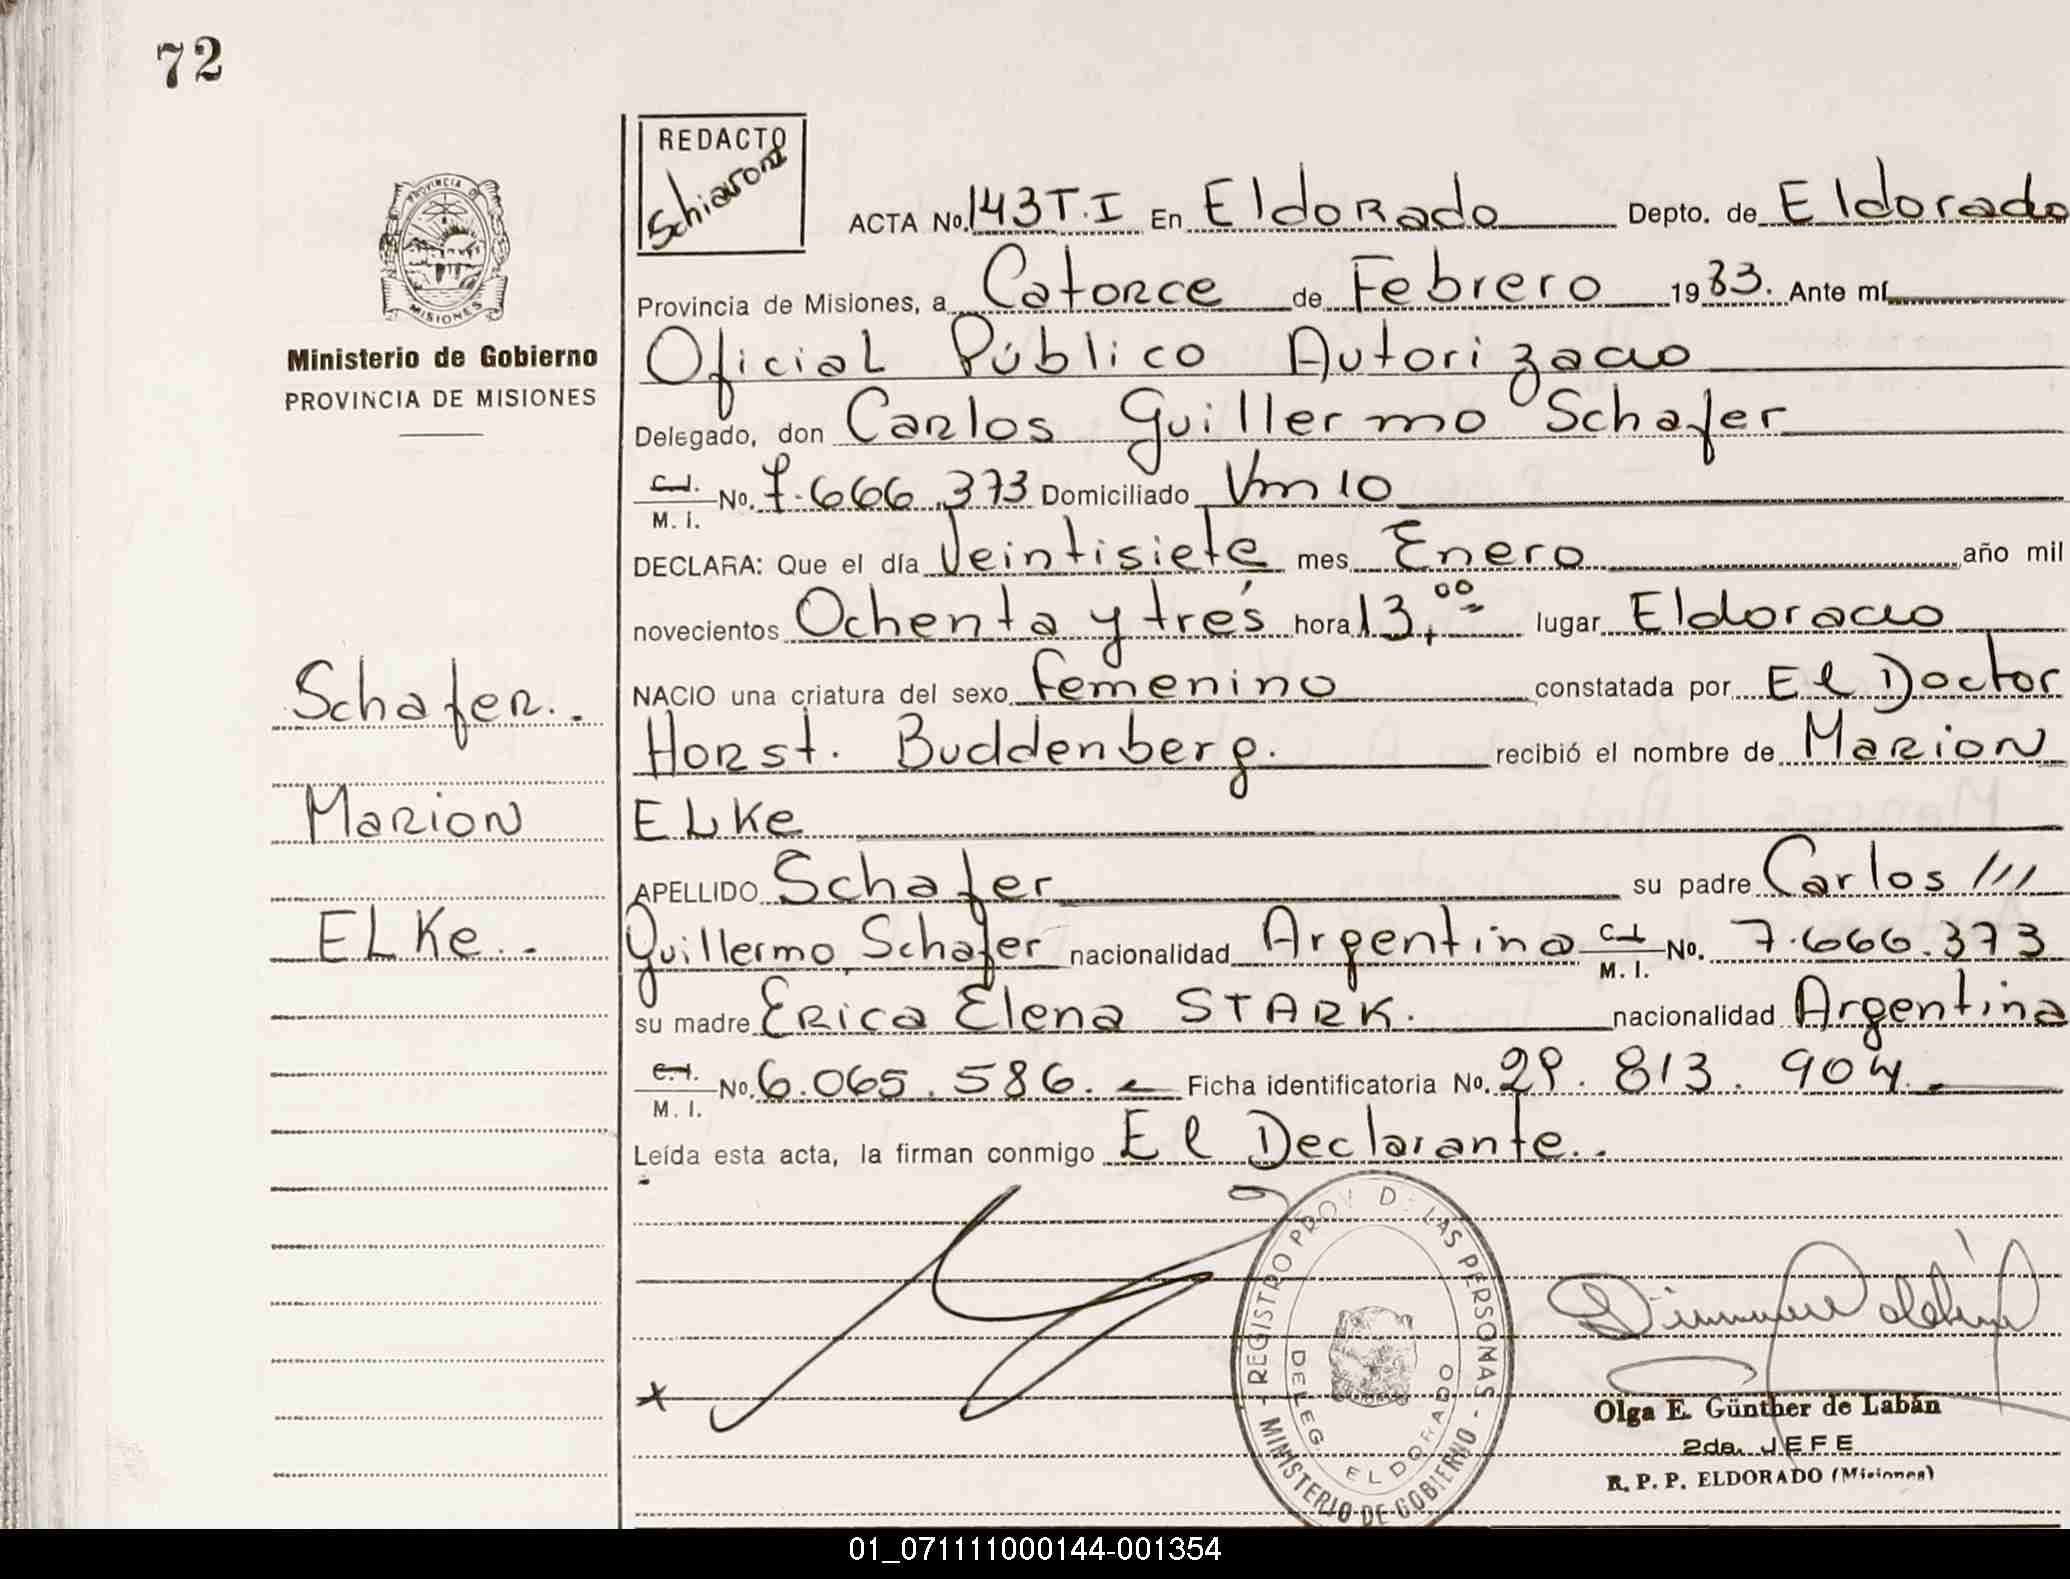 72
REDACTO
Schiavoni
ACTA No. 143 T.I En Eldorado Depto. de Eldorado
Provincia de Misiones, a Catorce de Febrero 1983. Ante mí
Oficial Público Autorizado
Delegado, don Carlos Guillermo Schafer
C.I. M. I. No. 7.666.373 Domiciliado Km 10
DECLARA: Que el día Veintisiete mes Enero año mil
novecientos Ochenta y trés hora 13,00 lugar Eldorado
NACIO una criatura del sexo femenino constatada por El Doctor
Horst. Buddenberg. recibió el nombre de Marion
ELKe
APELLIDO Schafer su padre Carlos ///
Guillermo Schafer nacionalidad Argentina C.I. M. I. No. 7.666.373
su madre Erica Elena STARK. nacionalidad Argentina
C.I. M. I. No. 6.065.586. Ficha identificatoria No. 29.813.904.
Leída esta acta, la firman conmigo El Declarante..
PROVINCIA DE
MISIONES
Ministerio de Gobierno
PROVINCIA DE MISIONES
Schafer..
Marion
ELKe..
REGISTRO PROV. DE LAS PERSONAS - MINISTERIO DE GOBIERNO -
DELEG. ELDORADO
Olga E. Günther de Labán
2da. JEFE
R. P. P. ELDORADO (Misiones)
01_071111000144-001354